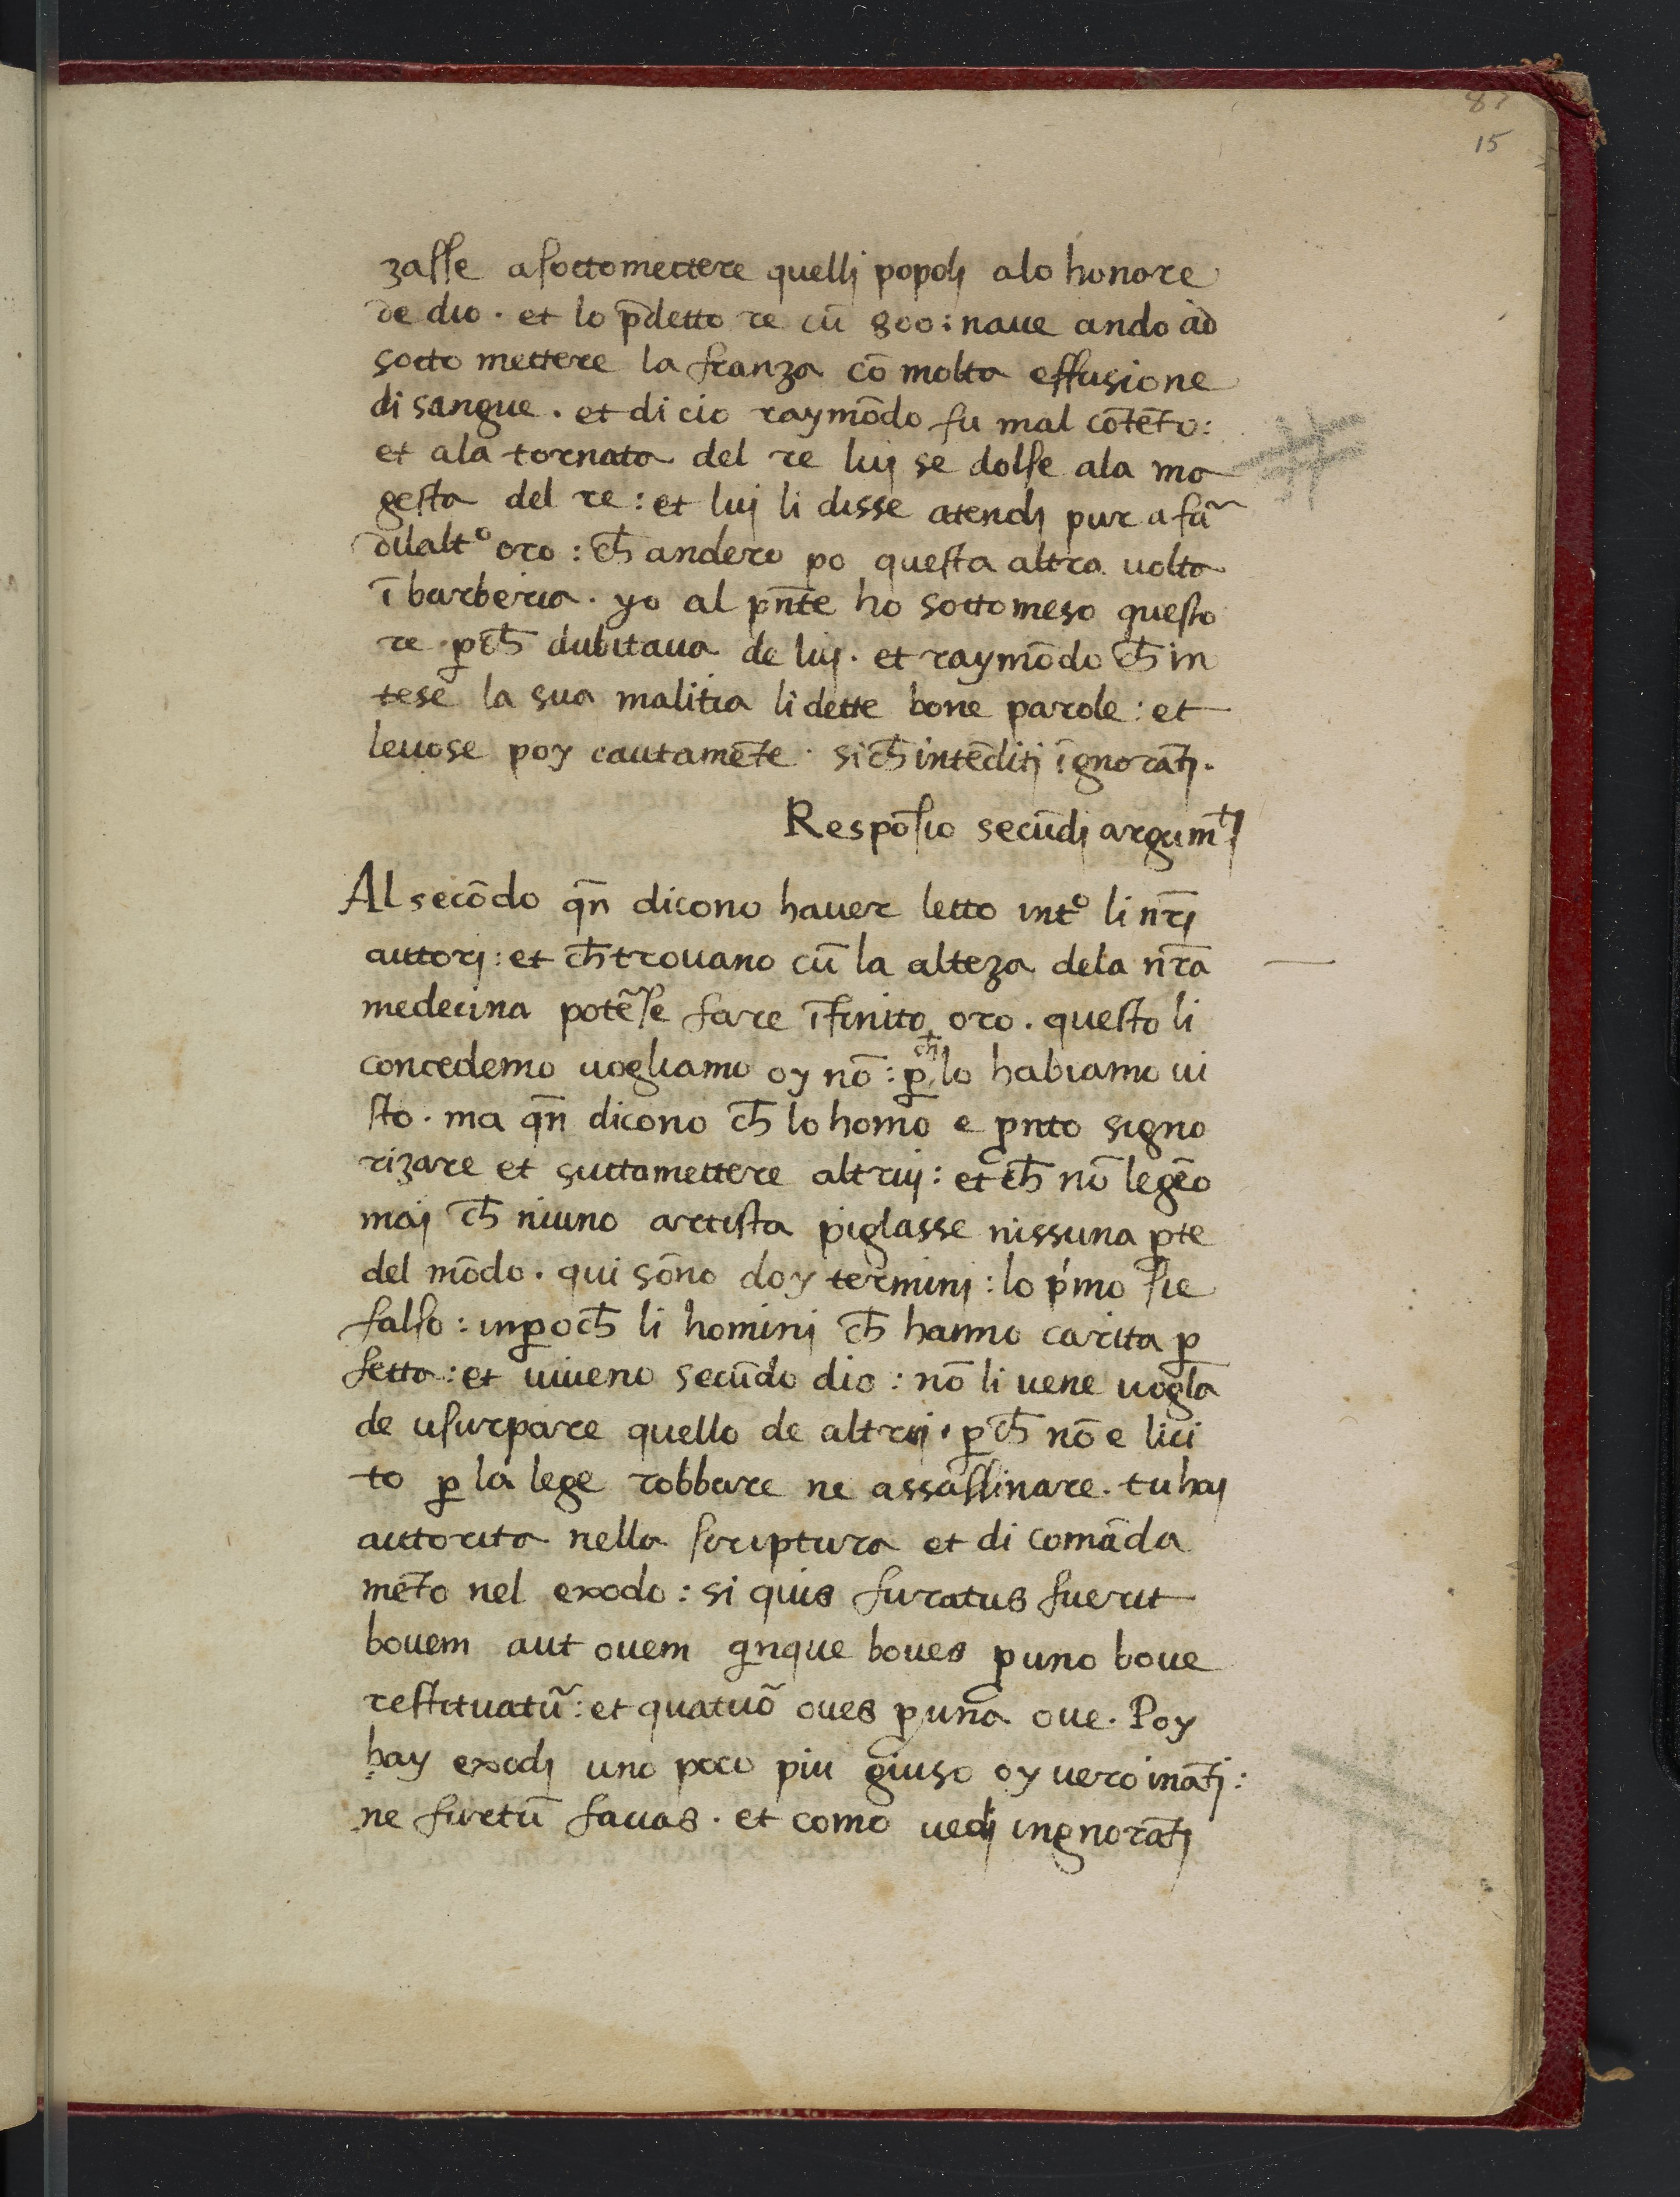 87
15
zasse asottomettere quellj popolj alo honore
de dio · et lo p̄detto re cū 800 : naue ando ad
sotto mettere la franza cō molta effusione
di sangue . et di cio raymōdo fu mal cōtēto :
et ala tornata del re luj se dolse ala ma
gesta del re : et luj li disse atendj pur a far̄
dilaltº oro : ch̄ andero po questa altra uolta
ī barberia · yo al pn̄te ho sottomeso questo
re · ꝑch̄ dubitaua de luj · et raymōdo ch̄ in
tese la sua malitia li dette bone parole : et
leuose poy cautamēte · sich̄ intēditj īgnorātj .
Respōsio secūdj argumᵗj
Al secōdo qn̄ dicono hauer letto intº li nr̄j
autorj : et ch̄ trouano cū la alteza dela nr̄a
medecina potēse fare īfinito oro . questo li
concedemo uogliamo oy nō : ꝑch̄ lo habiamo ui
sto · ma qn̄ dicono ch̄ lo homo e pnto signo
rizare et suttamettere altruj : et ch̄ nō legēo
maj ch̄ niuno artista piglasse nissuna ꝑte
del mōdo . qui sōno doy terminj : lo p'mo sie
falso : inꝑoch̄ li hominj ch̄ hanno carita ꝑ
fetta : et uiueno secūdo dio : nō li uene uogla
de usurpare quello de altruj · ꝑch̄ nō e lici
to ꝑ la lege robbare ne assassinare . tu haj
autorita nella scriptura et di comāda
mēto nel exodo : si quis furatus fuerit
bouem aut ouem qnque boues ꝑ uno boue
restituatū : et quatuō oues ꝑ una oue . Poy
hay exodj uno poco piu giuso oy uero inātj :
ne furtū facias · et como uedj ingnorātj